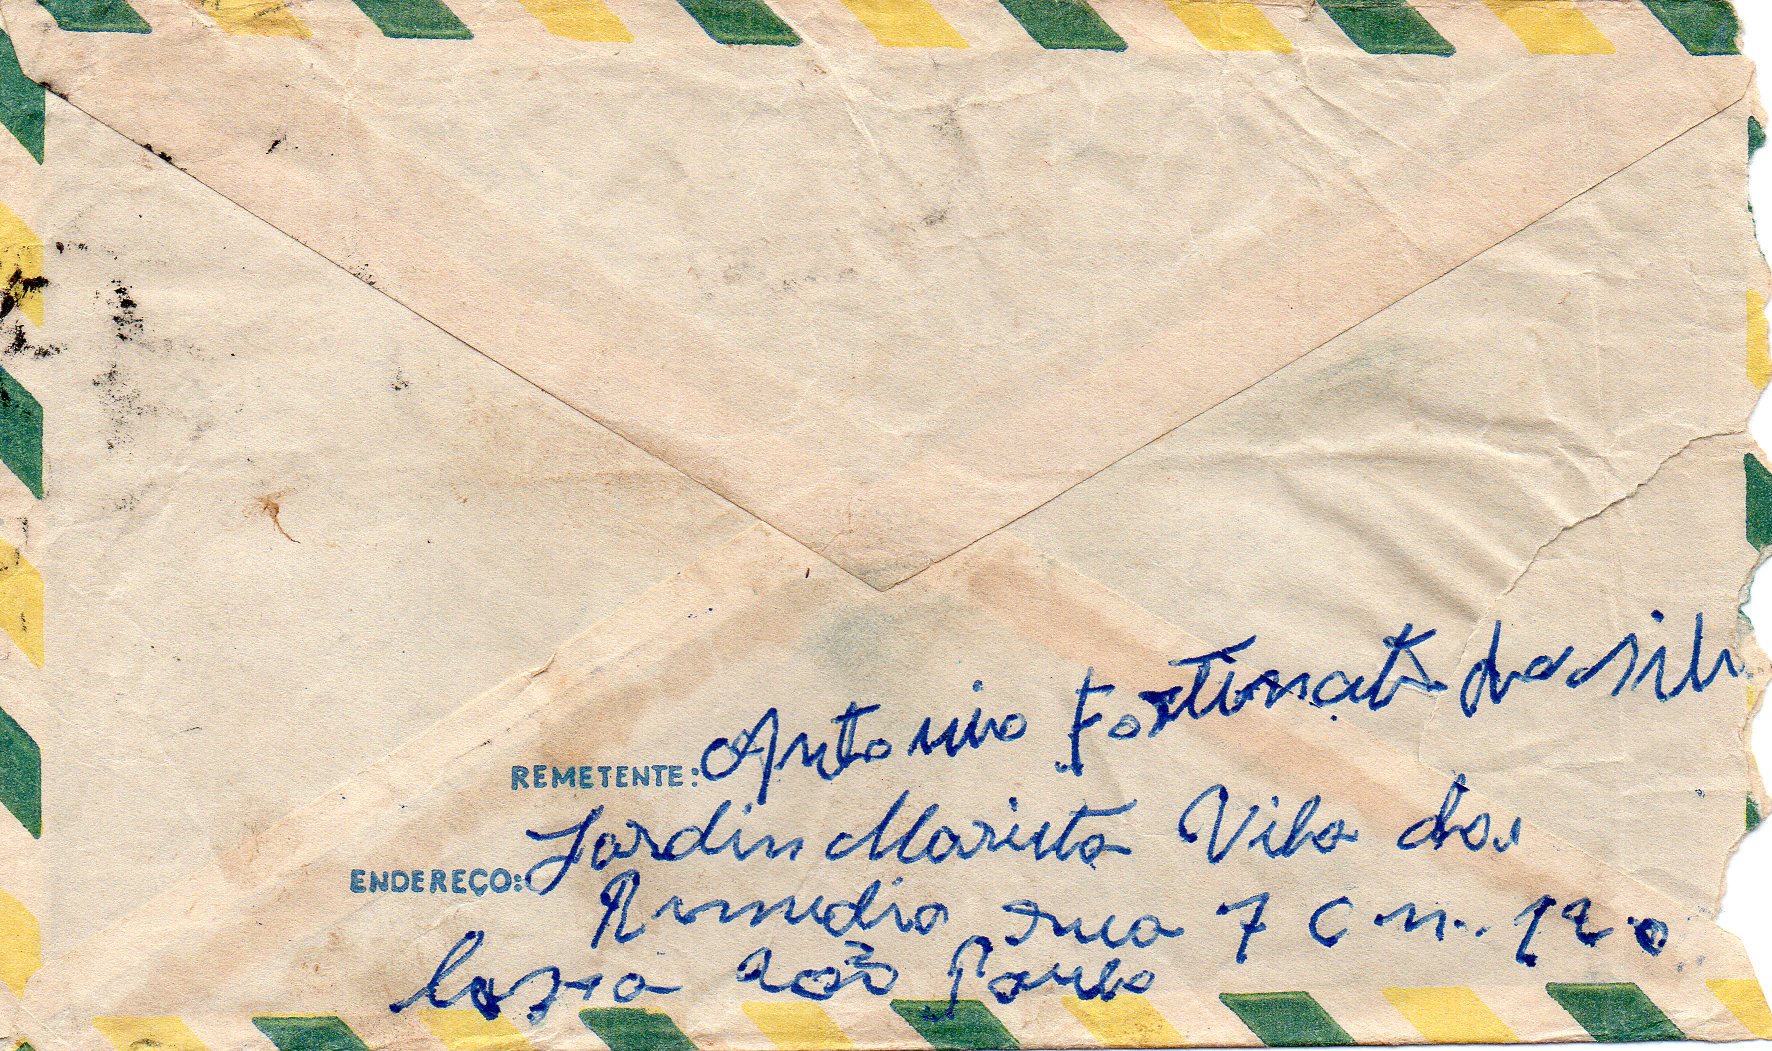 REMETENTE: Antonio Fortunato da silv
ENDEREÇO: Jardin Marista Vila dos
Remedio rua 7 C n.
São Paulo